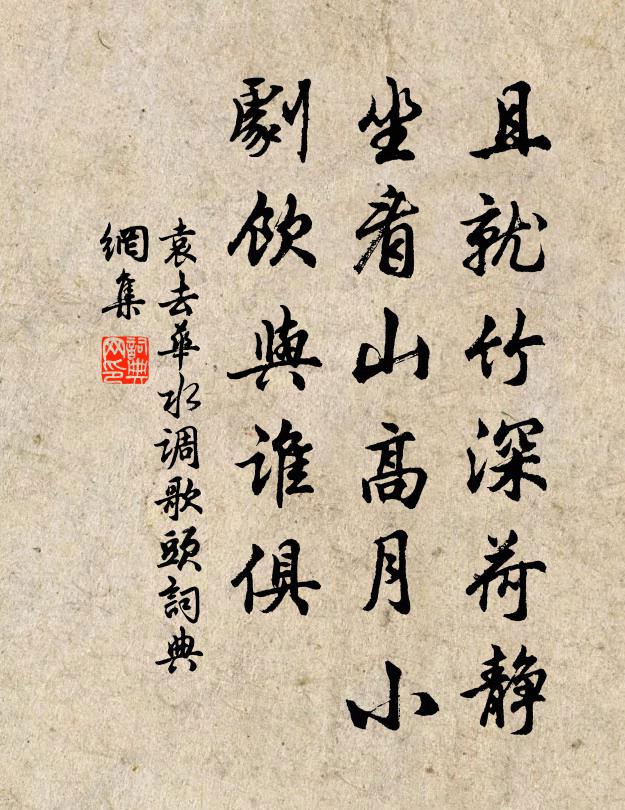 且就竹深荷静
坐看山高月小
劇飲與誰俱
袁去華水调歌頭詞典
網集
詞典
网印